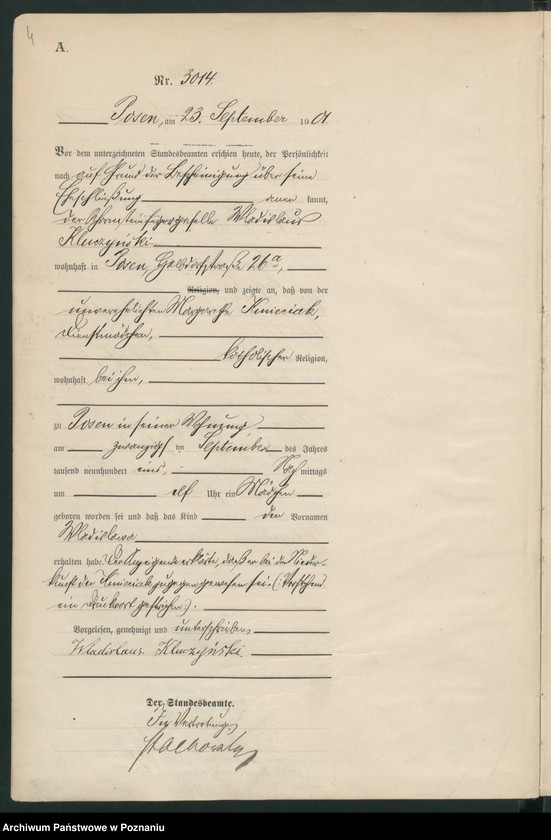 4
A.
Nr. 3014.
Posen, am 23. September 1901.
Vor dem unterzeichneten Standesbeamten erschien heute, der Persönlichkeit
nach auf Grund der Bescheinigung über seine
Eheschließung aner kannt,
der Schornsteinfegergeselle Wladislaus
Kluczyński
wohnhaft in Posen, 26a,
Religion, und zeigte an, daß von der
unverehelichten Margarethe Kmieciak,
Dienstmädchen,
katholischer Religion,
wohnhaft bei ihm,
zu Posen in seiner Wohnung
am zwanzigsten September des Jahres
tausend neunhundert eins, Nach mittags
um elf Uhr ein Mädchen
geboren worden sei und daß das Kind den Vornamen
Wladislawa
erhalten habe. Der Anzeigende erklärte, daß er bei der Nieder-
kunft der Kmieciak zugegen gewesen sei. (Vorstehend
ein Druckwort gestrichen).
Vorgelesen, genehmigt und unterschrieben
Wladislaus Kluczyński.
Der Standesbeamte.
In Vertretung:
Archiwum Państwowe w Poznaniu